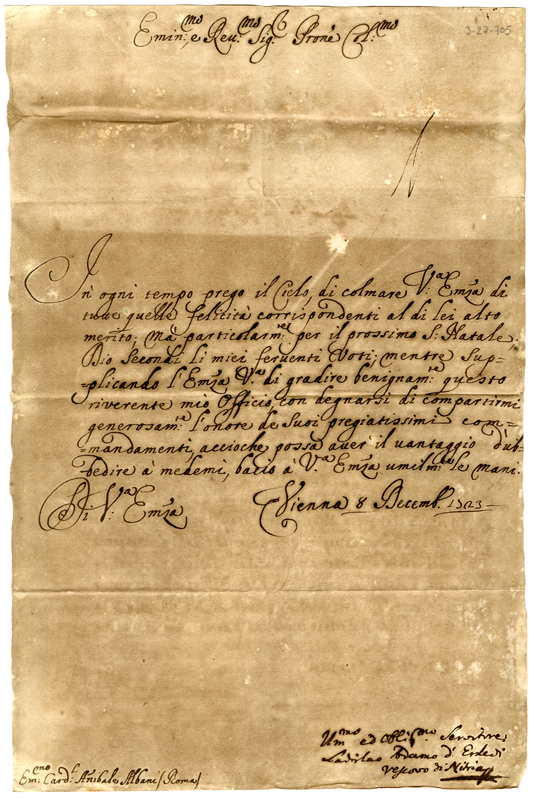 3-27-705
Emin:mo e Reu:mo Sig.r Prone Col:mo
In ogni tempo prego il Cielo, di colmare V:a Emza di
tutte quelle felicità corrispondenti al di lei alto
merito; Mà particolarm:te per il prossimo S: Natale.
Dio secondi li miei feruenti Voti; mentre sup=
=plicando l'Emza V:a di gradire benignam:te questo
riverente mio Officio, con degnarsi di compartirmi
generosam:te l'onore de Suoi pregiatissimi com=
=mandamenti, accioche possa auer' il uantaggio d'ub=
=bedire à medemi, bacio à V:a Emza umilm:te le mani.
Di V:a Emza Vienna 8 Decemb. 1723
Um:mo ed Obblig:mo Servitore
Ladislao Adamo d'Erdedi
Vescovo di Nitria
Em:mo Card:l Anibale Albani (Roma)